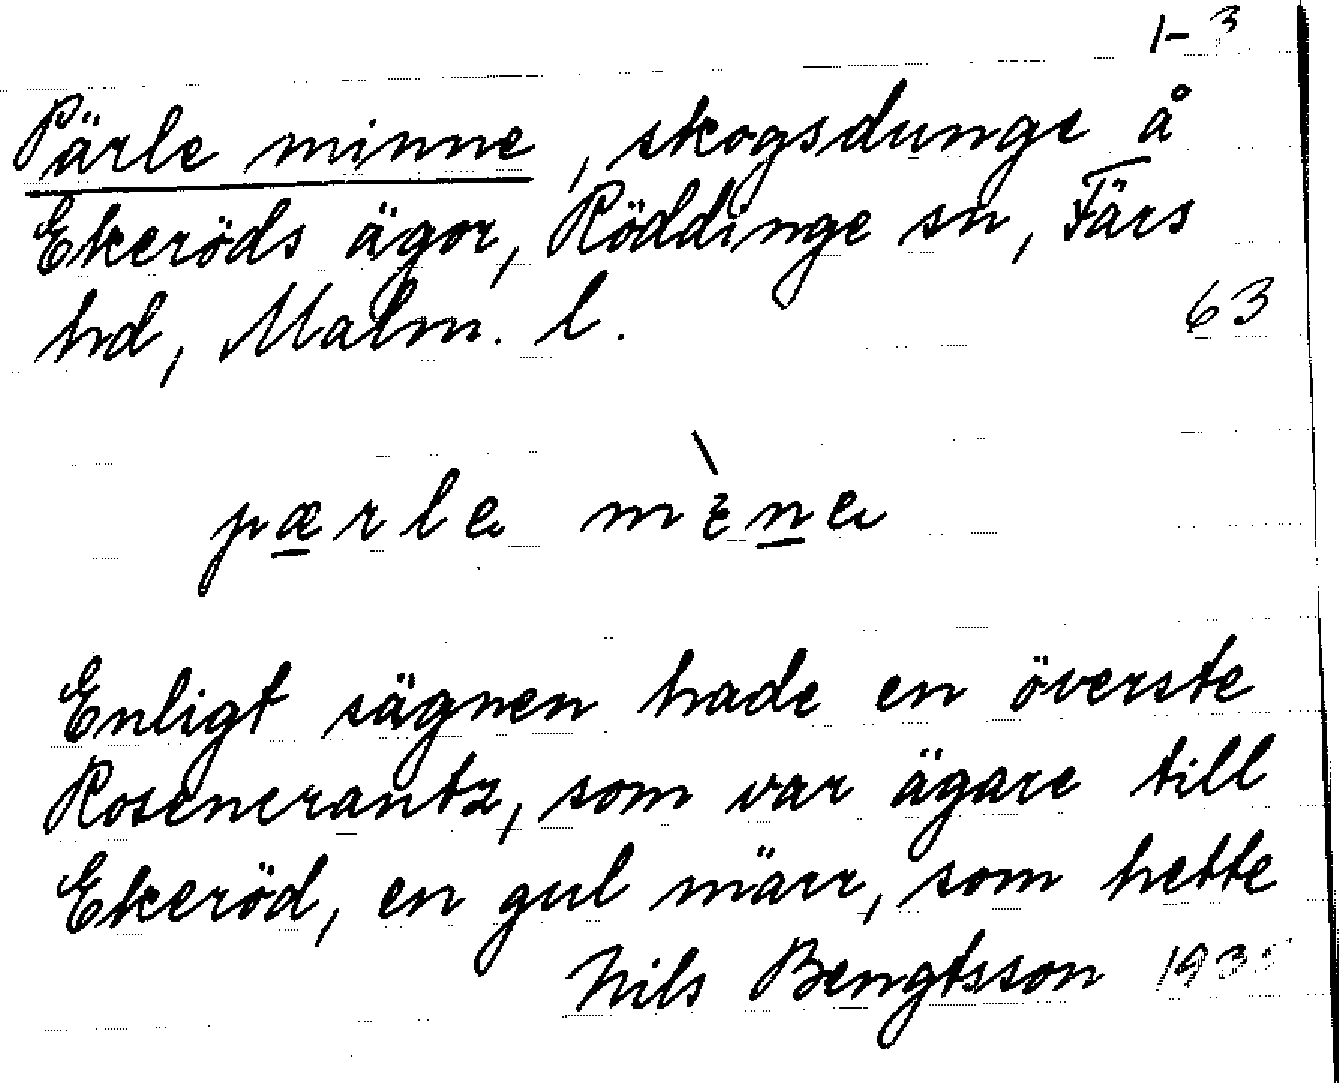 1-3
Pärle minne, skogsdunge å
Ekeröds ägor, Röddinge sn, Färs
hd, Malm. l.
63
pærle mὲne
Enligt sägnen hade en överste
Rosencrantz, som var ägare till
Ekeröd, en gul märr, som hette
Nils Bengtsson